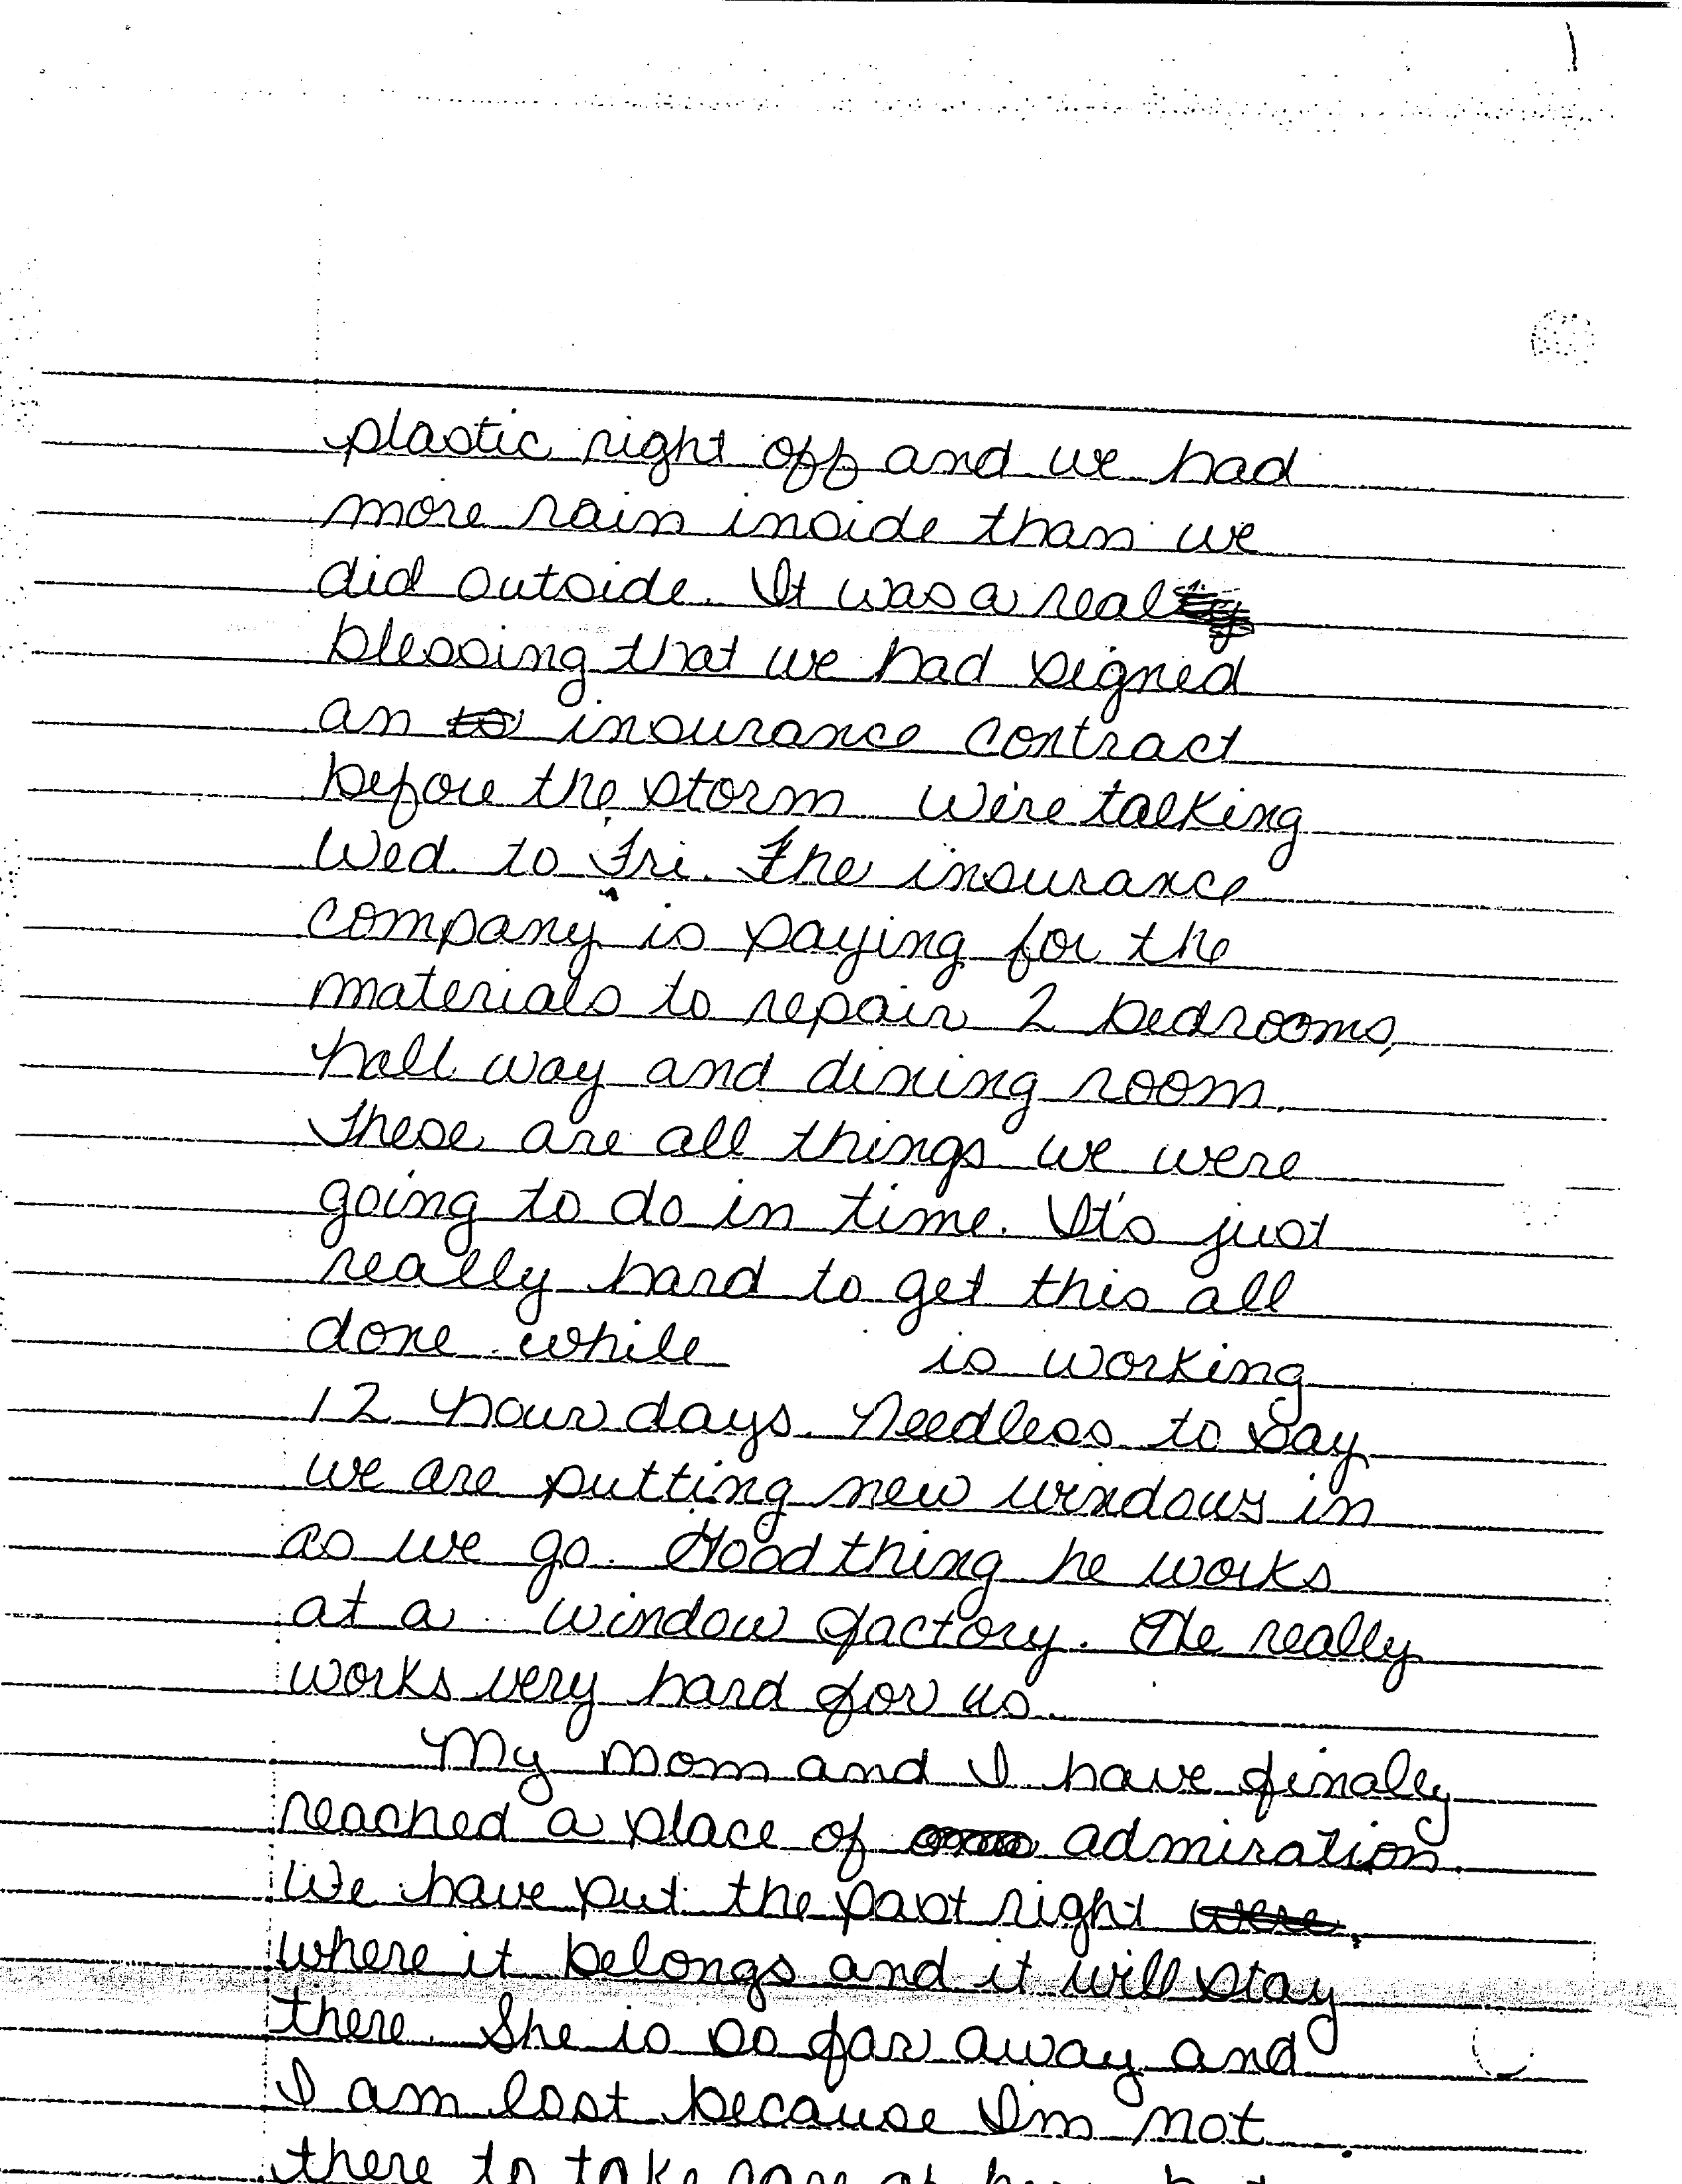 plastic right off and we had
more rain inside than we
did outside. It was a real
blessing that we had signed
an insurance contract
before the storm We're talking
Wed. to Fri. The insurance
company is paying for the
materials to repair 2 bedrooms,
hall way and dining room.
These are all things we were
going to do in time. It's just
really hard to get this all
done while is working
12 hour days. Needless to say
we are putting new windows in
as we go. Good thing he works
at a window factory. He really
works very hard for us.
My mom and I have finally
reached a place of admiration.
We have put the past right
where it belongs and it will stay
there. She is so far away and
I am lost because I'm not
there to take care of her but